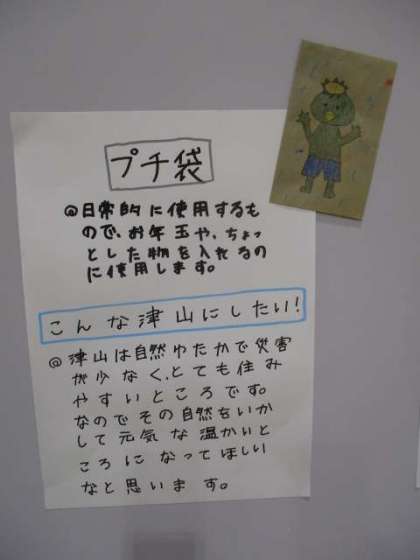 プチ袋
@日常的に使用するも
ので、お年玉や、ちょっ
とした物を入れるの
に使用します。
こんな津山にしたい!
@津山は自然ゆたかで災害
が少なく、とても住み
やすいところです。
なのでその自然をいか
して元気な温かいと
ころになってほしい
なと思います。